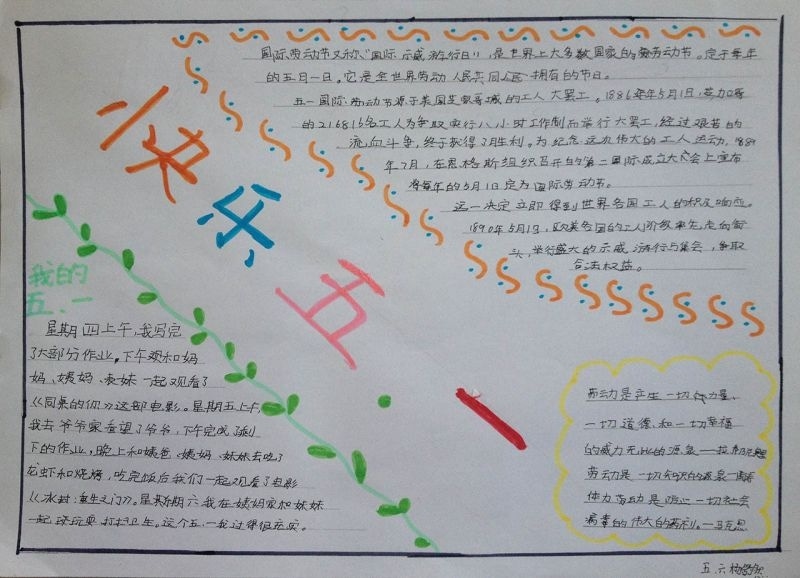 快乐五.一
国际劳动节又称"国际示威游行日",是世界上大多数国家的劳动节。定于每年
的五月一日。它是全世界劳动人民共同拥有的节日。
五一国际劳动节源于美国芝加哥城的工人大罢工。1886年5月1日,芝加哥
的216816名工人为争取实行八小时工作制而举行大罢工,经过艰苦的
流血斗争,终于获得了胜利。为纪念这次伟大的工人运动,1889
年7月,在恩格斯组织召开的第二国际成立大会上宣布
将每年的5月1日定为国际劳动节。
这一决定立即得到世界各国工人的积极响应。
1890年5月1日,欧美各国的工人阶级率先走向街
头,举行盛大的示威游行与集会,争取
合法权益。
我的
五.一
星期四上午,我写完
了大部分作业。下午观和妈
妈、姨妈、表妹一起观看了
《同桌的你》这部电影。星期五上午,
我去爷爷家看望了爷爷,下午完成了剩
下的作业,晚上和姨爸、姨妈、妹妹去吃了
龙虾和烧烤,吃完饭后我们一起观看了电影
《冰封:重生之门》。星期六我在姨妈家和妹妹
一起玩耍、打扫卫生。这个五.一我过得很充实。
劳动是产生一切力量、
一切道德和一切幸福
的威力无比的源泉——拉
劳动是一切知识的源泉—陶铸
体力劳动是防止一切社会
病毒的伟大的—马克思
五.六